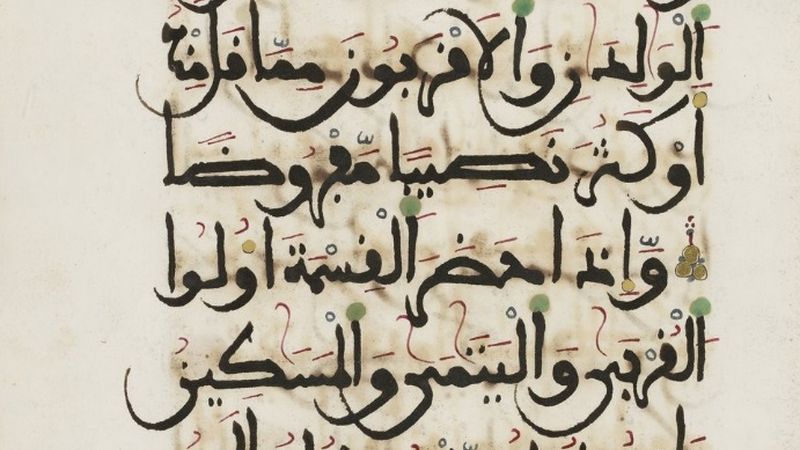 الْوَٰلِدَٰنِ وَالْأَقْرَبُونَ مِمَّا قَلَّ مِنْهُ
أَوْ كَثُرَ نَصِيبًا مَّفْرُوضًا
وَإِذَا حَضَرَ الْقِسْمَةَ أُوْلُوا
الْقُرْبَىٰ وَالْيَتَٰمَىٰ وَالْمَسَٰكِينُ